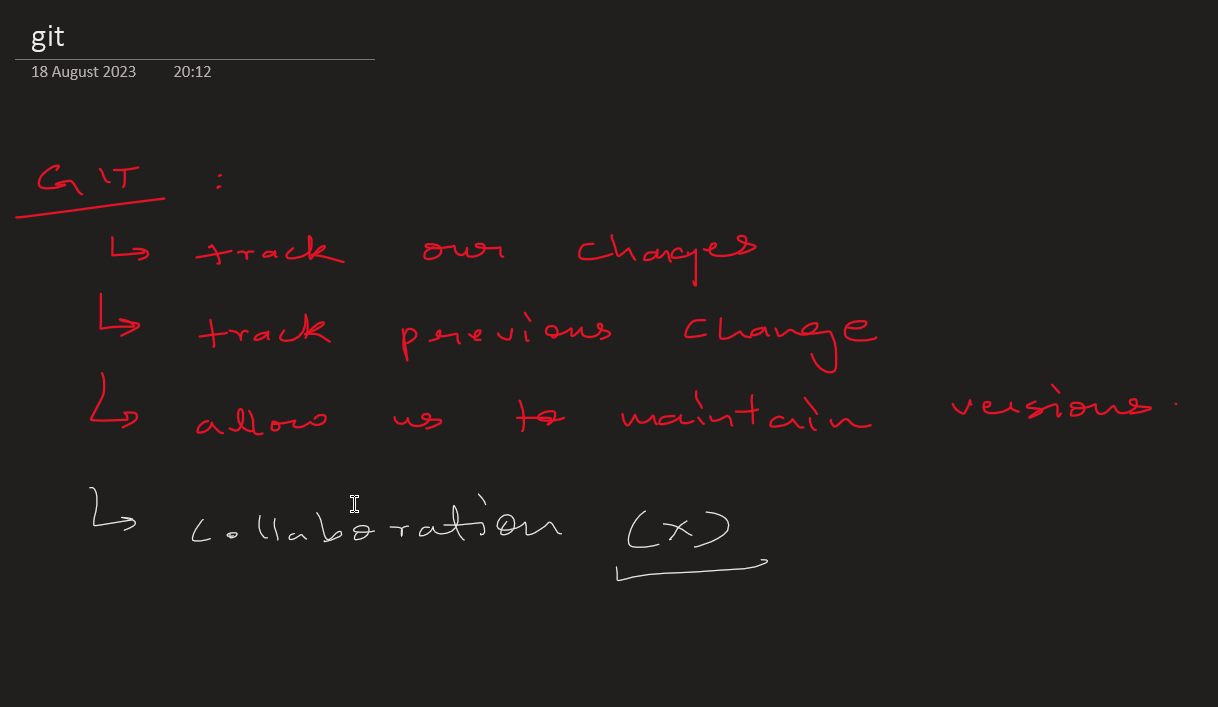 git
18 August 2023 20:12
GIT :
↳ track our changes
↳ track previous change
↳ allow us to maintain versions.
↳ collaboration (x)